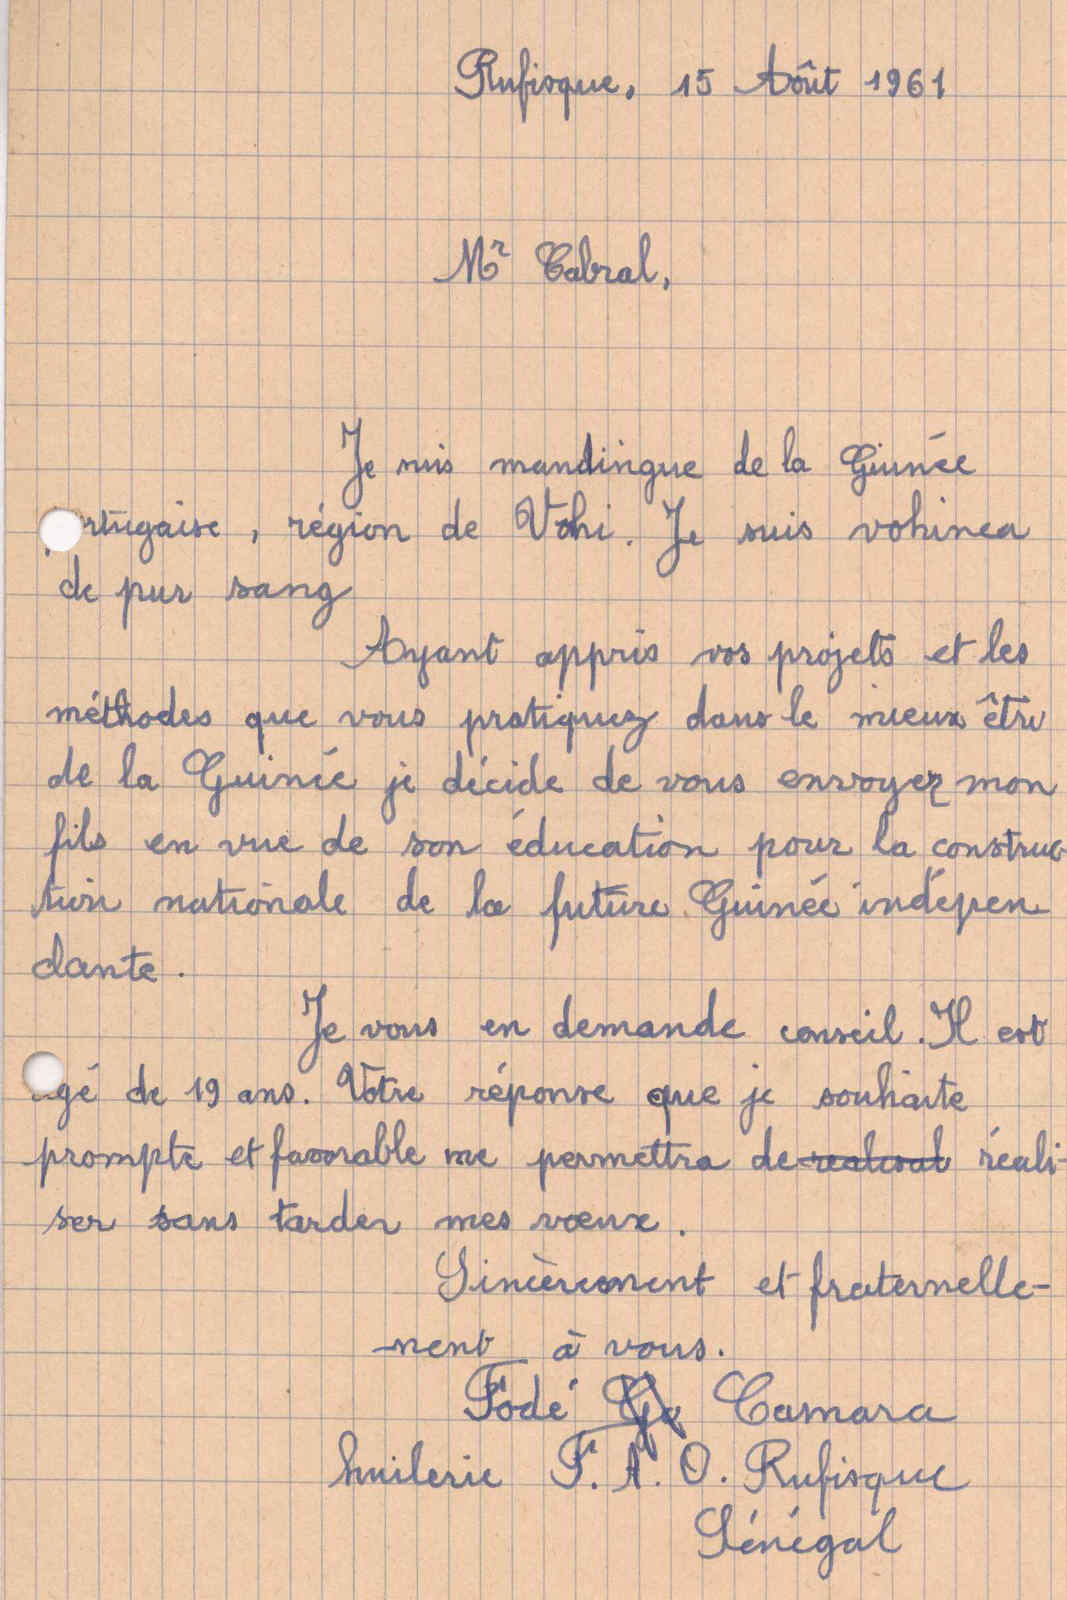 Rufisque, 15 Août 1961
Mr Cabral,
Je suis mandingue de la Guinée
rtugaise, région de Vohi. Je suis vohinca
de pur sang
Ayant appris vos projets et les
méthodes que vous pratiquez dans le mieux être
de la Guinée je décide de vous envoyer mon
fils en vue de son éducation pour la construc
tion nationale de la future Guinée indépen
dante.
Je vous en demande conseil. Il est
gé de 19 ans. Votre réponse que je souhaite
prompte et favorable me permettra de réali-
ser sans tarder mes vœux.
Sincèrement et fraternelle-
ment à vous.
Fodé Camara
huilerie F. A. O. Rufisque
Sénégal